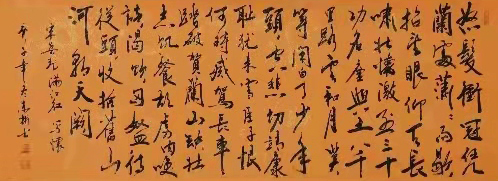 怒髮衝冠凭
蘭處瀟瀟雨歇
抬望眼仰天長
嘯壯懷激烈三十
功名塵與土八千
里路雲和月莫
等閑白了少年
頭空悲切靖康
恥猶未雪臣子恨
何時滅駕長車
踏破賀蘭山缺壯
志飢餐胡虜肉咲
談渴飲匈奴血待
從頭收拾舊山
河朝天闕
宋岳飛滿江紅寫懷
庚子年冬